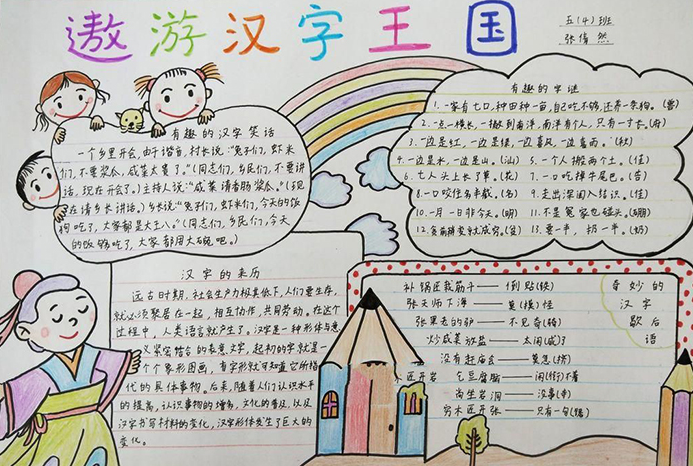 遨游汉字王国
五(4)班
张倩然
有趣的汉字笑话
一个乡里开会,由于谐音,村长说:“兔子们,虾米
们,不要浆瓜,咸菜太贵了。”(同志们,乡民们,不要讲
话,现在开会了。)主持人说:“咸菜请香肠浆瓜。”(现
在请乡长讲话。)乡长说:“兔子们,虾米们,今天的饭
狗吃了,大家都是大王八。”(同志们,乡民们,今天
的饭够吃了,大家都用大碗吧。)
有趣的字谜
1.一家有七口,种田种一亩,自己吃不够,还养一条狗。(兽)
2.一点一横长,一撇到南洋,南洋有个人,只有一寸长。(府)
3.一边是红,一边是绿,一边喜风,一边喜雨。(秋)
4.一边是水,一边是山。(汕)
5.一个人搬两个土。(佳)
6.七人头上长了草。(花)
7.一口吃掉牛尾巴。(告)
8.一口咬住多半截。(名)
9.走出深闺人结识。(佳)
10.一月一日非今天。(明)
11.不是冤家也碰头。(硼)
12.贪前稍变就成穷。(贫)
13.要一半,扔一半。(奶)
汉字的来历
远古时期,社会生产力极其低下,人们要生存,
就必须聚居在一起,相互协作,共同劳动。在这个
过程中,人类语言就产生了。汉字是一种形体与意
义紧密结合的表意文字,起初的字就是一
个个象形图画,看字形就可知道它所指
代的具体事物。后来,随着人们认识水平
的提高,认识事物的增多,文化的普及,以及
汉字书写材料的变化,汉字形体发生了巨大的
变化。
奇妙的
汉字
歇后
语
补锅匠栽筋斗——倒贴(铁)
张天师下海——莫(摸)怪
张果老的驴——不见奇(骑)
炒咸菜放盐——太闲(咸)了
没有赶庙会——莫怠(带)
木匠开店
乞丐腐脑——闲(衔)不着
尚坐岩洞——没事(寺)
穷木匠开张——只有一句(锯)